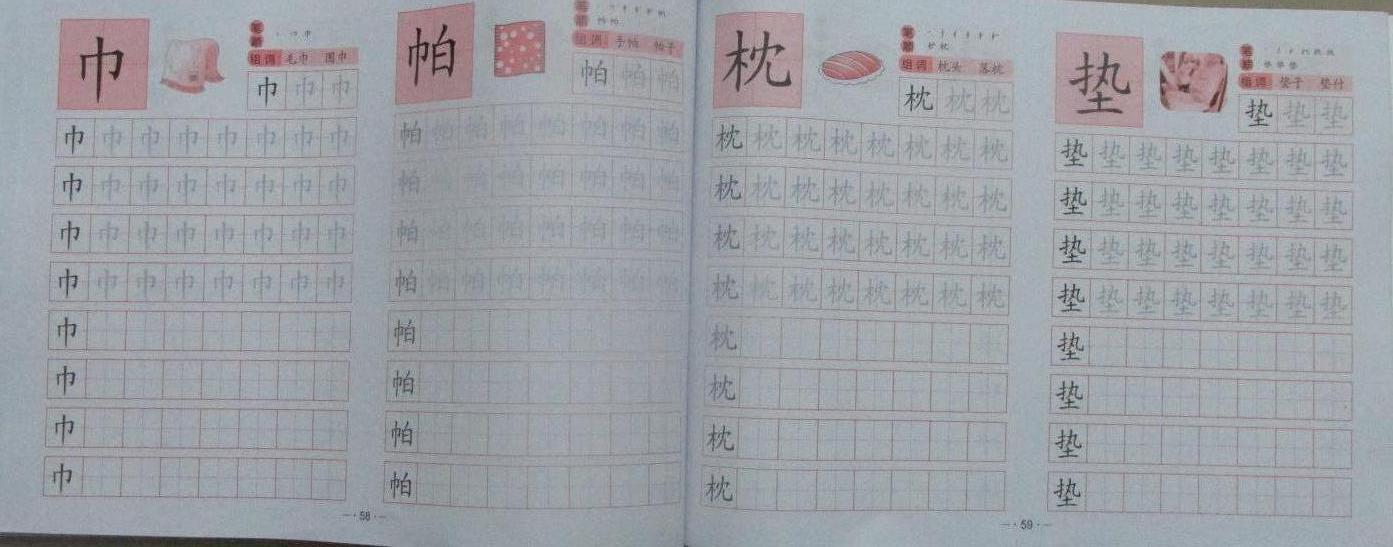 巾
笔顺
组词 毛巾 围巾
巾巾巾
巾巾巾巾巾巾巾巾
巾巾巾巾巾巾巾巾
巾巾巾巾巾巾巾巾
巾巾巾巾巾巾巾巾
巾
巾
巾
巾
帕
笔顺
组词 手帕 帕子
帕帕帕
帕帕帕帕帕帕帕帕
帕帕帕帕帕帕帕帕
帕帕帕帕帕帕帕帕
帕帕帕帕帕帕帕帕
帕
帕
帕
帕
58
枕
笔顺
组词 枕头 落枕
枕枕枕
枕枕枕枕枕枕枕枕
枕枕枕枕枕枕枕枕
枕枕枕枕枕枕枕枕
枕枕枕枕枕枕枕枕
枕
枕
枕
枕
垫
笔顺
组词 垫子 垫付
垫垫垫
垫垫垫垫垫垫垫垫
垫垫垫垫垫垫垫垫
垫垫垫垫垫垫垫垫
垫垫垫垫垫垫垫垫
垫
垫
垫
垫
59